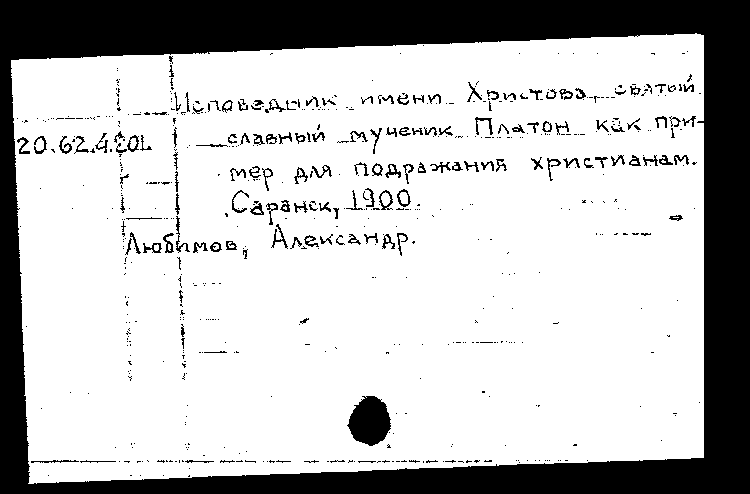 Исповедник имени Христова, святый
20.62.4.20L славный мученик Платон как при-
мер для подражания христианам.
Саранск, 1900.
Любимов, Александр.